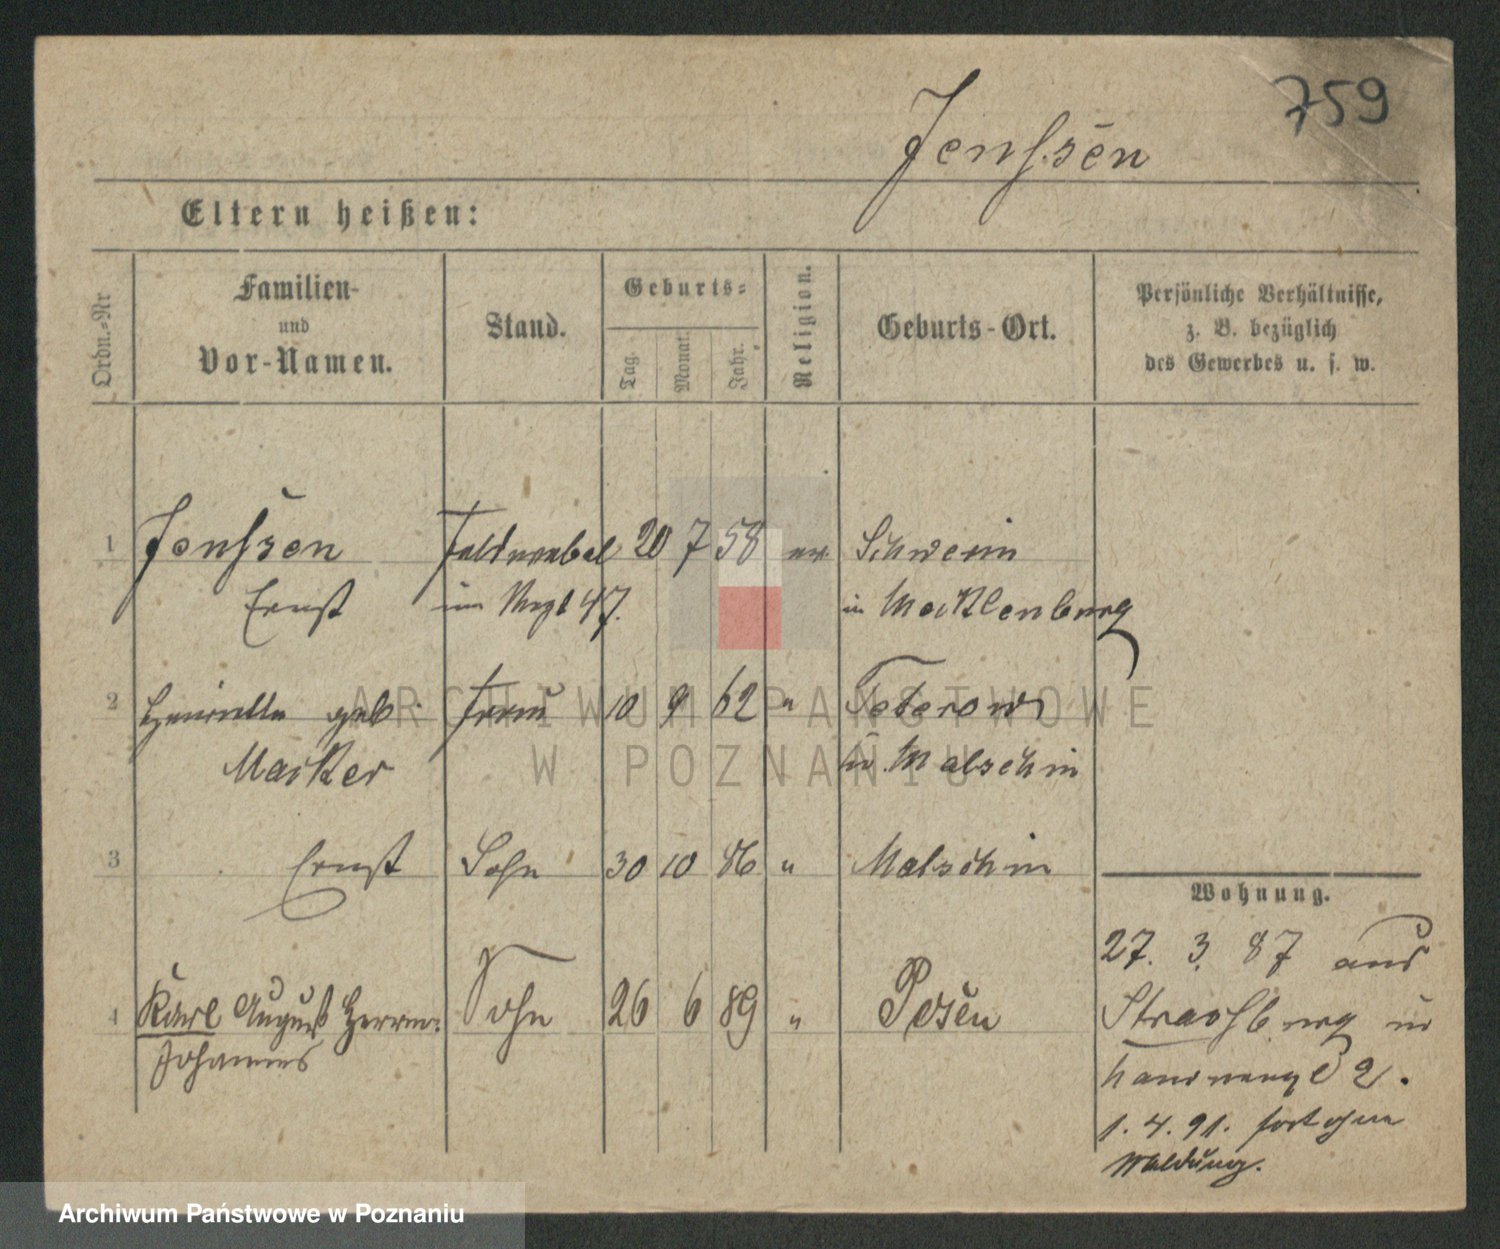 759
Jenssen
Eltern heißen:
Ordn.-Nr
Familien-
und
Vor-Namen.
Stand.
Geburts-
Tag.
Monat.
Jahr.
Religion.
Geburts-Ort.
Persönliche Verhältnisse,
z. B. bezüglich
des Gewerbes u. s. w.
1 Jenssen Feldwebel 20 7 58 ev. Schwerin
Ernst im Regt 47. in Mecklenburg
2 Henriette geb. Frau 10 9 62 " Teterow
Macker Malschin
3 Ernst Sohn 30 10 86 " Malschin
4 Karl August Herrm. Sohn 26 6 89 " Posen
Johannes
Wohnung.
27. 3. 87 aus
Strassburg in
2.
1. 4. 91. fort ohne
Meldung.
ARCHIWUM PAŃSTWOWE
W POZNANIU
Archiwum Państwowe w Poznaniu